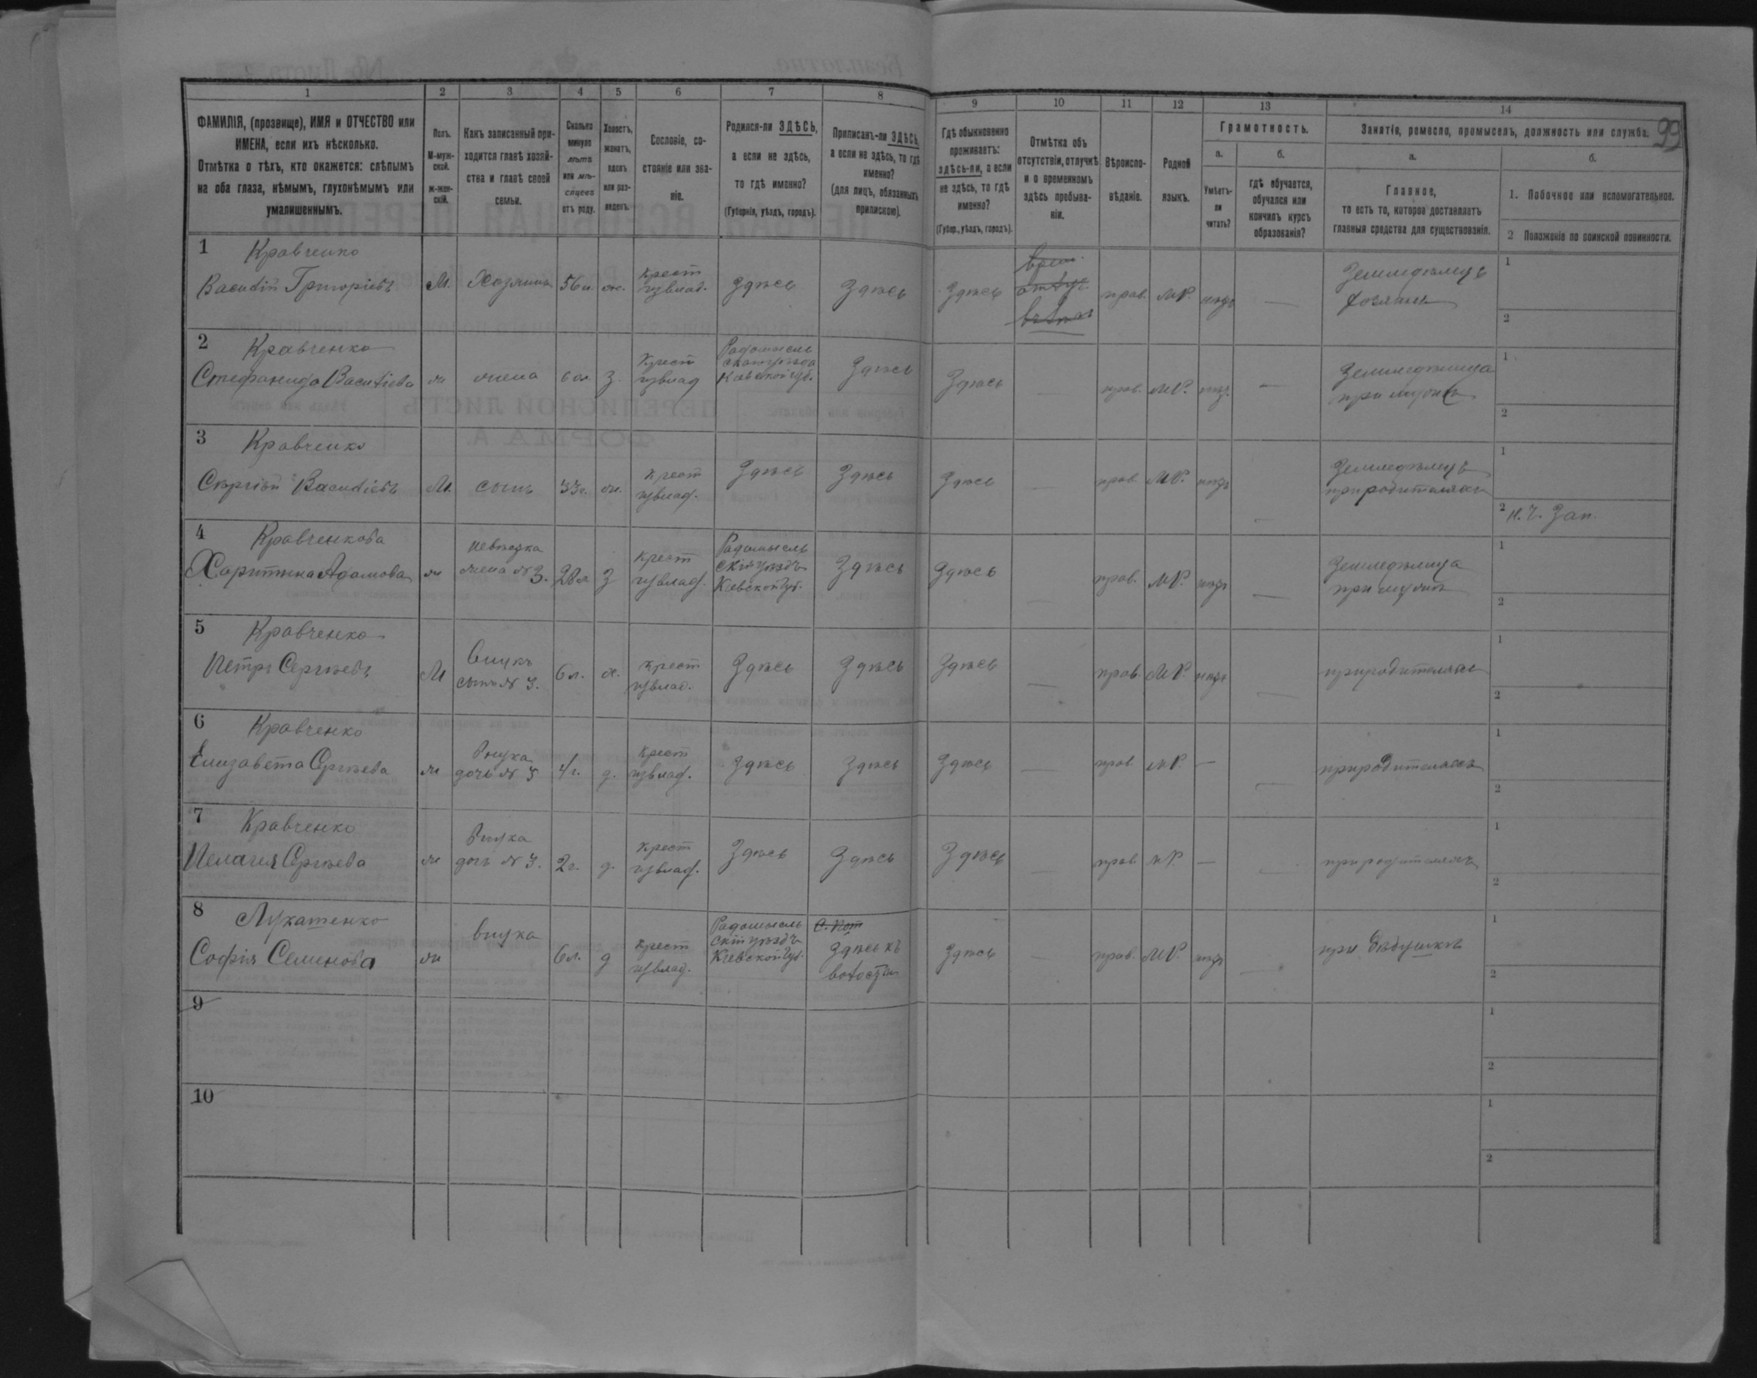 1 2 3 4 5 6 7 8 9 10 11 12 13 14
99
ФАМИЛІЯ, (прозвище), ИМЯ и ОТЧЕСТВО или
ИМЕНА, если ихъ нѣсколько.
Отмѣтка о тѣхъ, кто окажется: слѣпымъ
на оба глаза, нѣмымъ, глухонѣмымъ или
умалишеннымъ.
Полъ.
М-муж-
ской.
ж-жен-
скій.
Какъ записанный при-
ходится главѣ хозяй-
ства и главѣ своей
семьи.
Сколько
минуло
лѣтъ
или мѣ-
сяцевъ
отъ роду.
Холостъ,
женатъ,
вдовъ
или раз-
веденъ.
Сословіе, со-
стояніе или зва-
ніе.
Родился-ли ЗДѢСЬ,
а если не здѣсь,
то гдѣ именно?
(Губернія, уѣздъ, городъ).
Приписанъ-ли ЗДѢСЬ,
а если не здѣсь, то гдѣ
именно?
(для лицъ, обязанныхъ
припискою).
Гдѣ обыкновенно
проживаетъ:
здѣсь-ли, а если
не здѣсь, то гдѣ
именно?
(Губер., уѣздъ, городъ).
Отмѣтка объ
отсутствіи, отлучкѣ
и о временномъ
здѣсь пребыва-
ніи.
Вѣроиспо-
вѣданіе.
Родной
языкъ.
Грамотность.
а.
Умѣетъ-
ли
читать?
б.
гдѣ обучается,
обучался или
кончилъ курсъ
образованія?
Занятіе, ремесло, промыселъ, должность или служба.
а.
Главное,
то есть то, которое доставляетъ
главныя средства для существованія.
б.
1. Побочное или вспомогательное.
2 Положеніе по воинской повинности.
1 Кравченко
Василій Григоріевъ М. Хозяинъ 56 л. Крест Здѣсь Здѣсь Здѣсь прав. МР. Земледѣлецъ
хозяинъ
2 Кравченко
Стефанида Васильева ж жена з. Крест Здѣсь Здѣсь прав. МР. Земледѣлица
при мужѣ
3 Кравченко
Сергѣй Васильевъ М. сынъ 33 г. ж. Крест Здѣсь Здѣсь Здѣсь прав. МР. Земледѣлецъ
при родителяхъ
2 Н. Ч. Зап.
4 Кравченкова
Харитина Адамова ж невѣстка
жена №3. 28 л. з Крест Радомысль
скій уѣздъ
Кіевской губ. Здѣсь Здѣсь прав. МР. Земледѣлица
при мужѣ
5 Кравченко
Петръ Сергѣевъ М Внукъ
сынъ №3. 6 л. х. Крест Здѣсь Здѣсь Здѣсь прав. МР. при родителяхъ
6 Кравченко
Елизавета Сергѣева ж Внука
дочь №3 4 г. д. Крест Здѣсь Здѣсь Здѣсь прав МР — при родителяхъ
7 Кравченко
Пелагея Сергѣева ж Внука
дочь №3. 2 г. д. Крест Здѣсь Здѣсь Здѣсь прав МР. — при родителяхъ
8 Лукашенко
Софія Семенова ж внука 6 л. д Крест Радомысль
скій уѣздъ
Кіевской губ. Здѣсь къ
волости Здѣсь прав. МР. при дѣдушкѣ
9
10